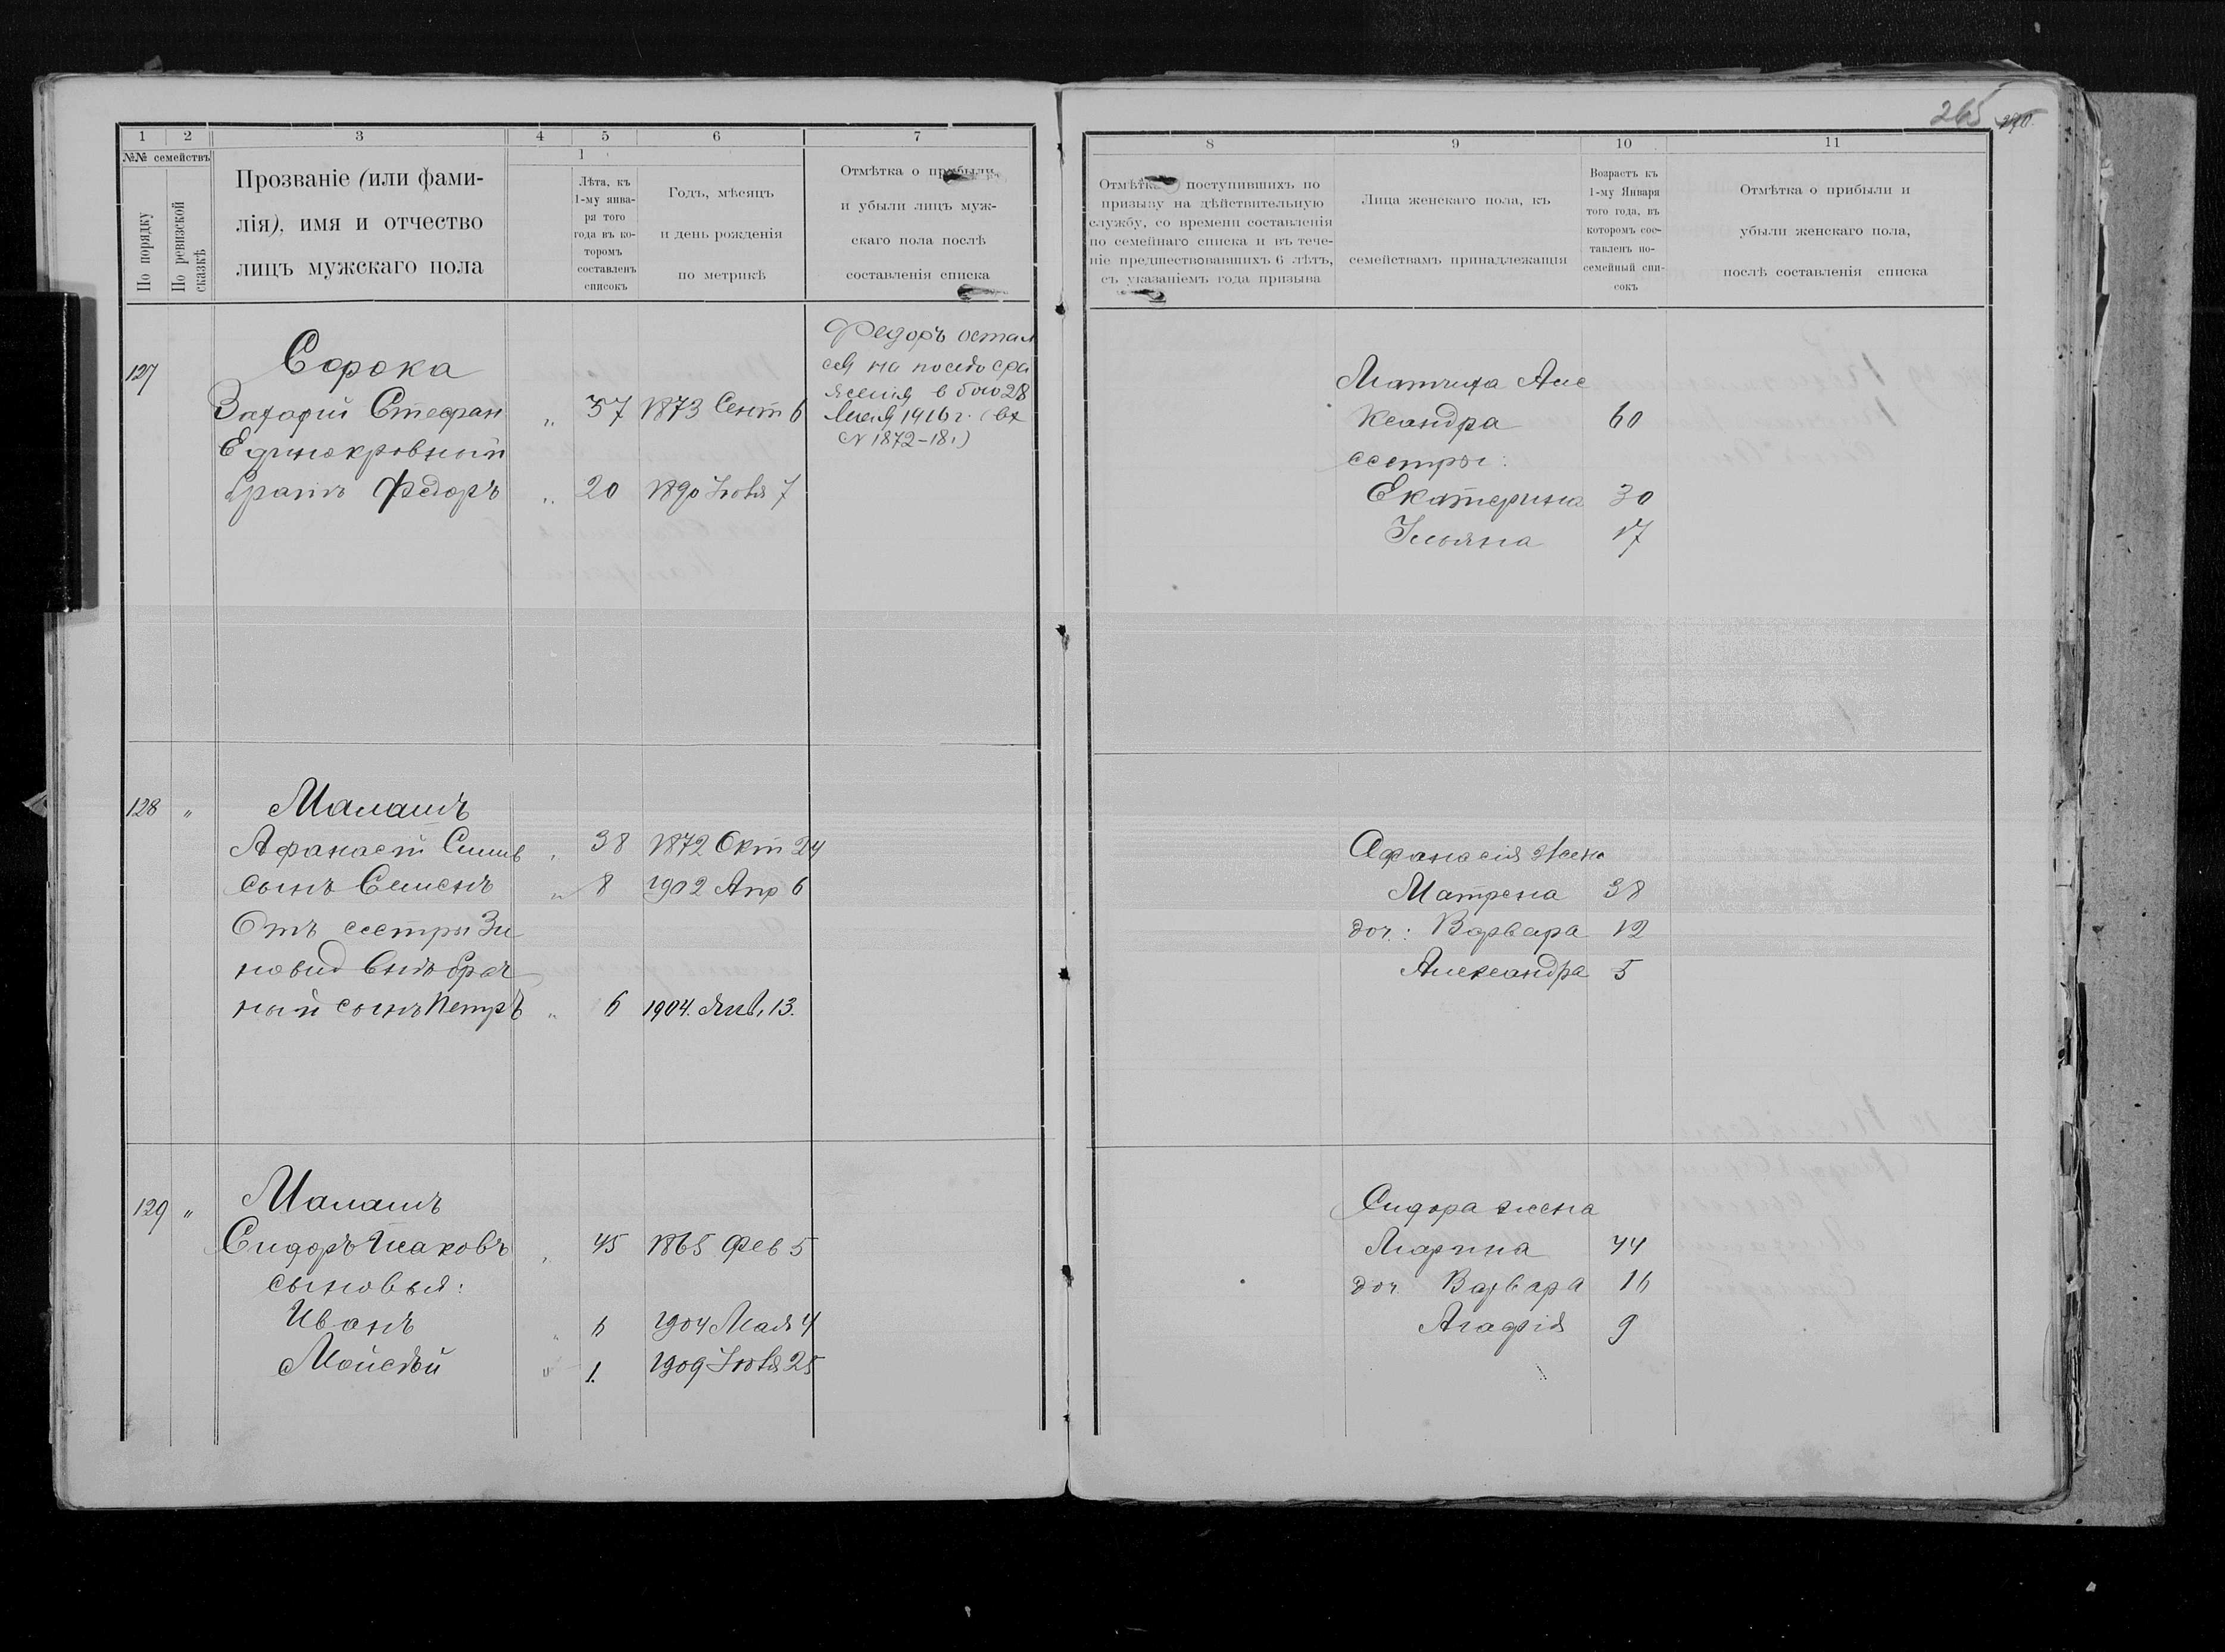 265
1 2 3 4 5 6 7
№№ семействъ
По порядку
По ревизской сказкѣ
Прозваніе (или фами-
лія), имя и отчество
лицъ мужскаго пола
1
Лѣта, къ
1-му янва-
ря того
года въ ко-
торомъ
составленъ
списокъ
Годъ, мѣсяцъ
и день рожденія
по метрикѣ
Отмѣтка о прибыли
и убыли лицъ муж-
скаго пола послѣ
составленія списка
8 9 10 11
поступившихъ по
призыву на дѣйствительную
службу, со времени составленія
по семейнаго списка и въ тече-
ніе предшествовавшихъ 6 лѣтъ,
съ указаніемъ года призыва
Лица женскаго пола, къ
семействамъ принадлежащія
Возрастъ къ
1-му Января
того года, въ
которомъ сос-
тавленъ по-
семейный спи-
сокъ
Отмѣтка о прибыли и
убыли женскаго пола,
послѣ составленія списка
127 Сорока
Стефан „ 37 1873 Сент 6
Единокровный
братъ Федоръ „ 20 1890 Іюня 7
Федоръ остал
ся на
в бою 28
1916 г. (вх
N 1872-181)
Матчиха Але
ксандра 60
сестры:
Екатерина 30
Ульяна 17
128 „ Малашъ
Афанасій Симив „ 38 1872 Окт 24
сынъ Семенъ „ 8 1902 Апр 6
Отъ сестры Зи
новіи Внѣбрач
ный сынъ Петръ „ 6 1904. Янв. 13.
Афанасія жена
Матрена 38
доч.: Варвара 12
Александра 5
129 „ Малашъ
Сидоръ Исаковъ „ 45 1865 Фев 5
сыновья:
Иванъ „ 6 1904 Мая 4
Мойсѣй „ 1. 1909 Іюня 25
Сидора жена
Марина 44
доч. Варвара 16
Агафія 9